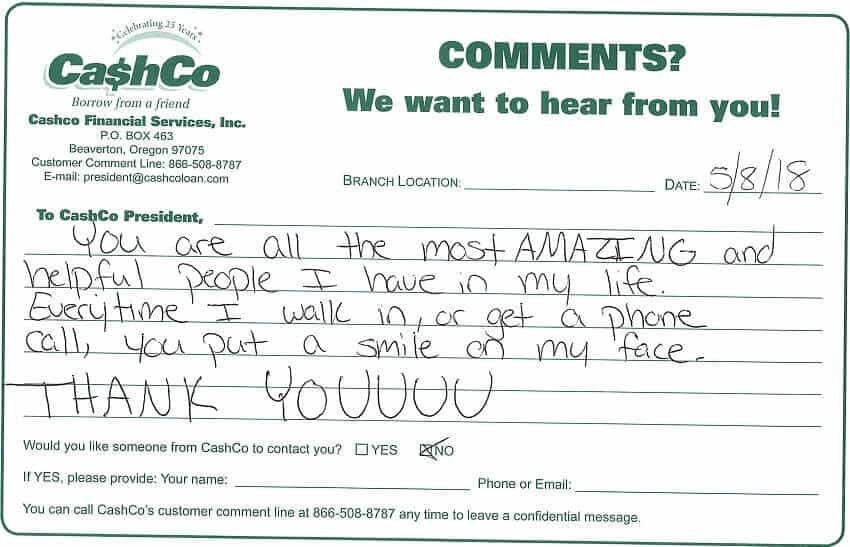 Celebrating 25 Years
Ca$hCo
Borrow from a friend
Cashco Financial Services, Inc.
P.O. BOX 463
Beaverton, Oregon 97075
Customer Comment Line: 866-508-8787
E-mail: president@cashcoloan.com
COMMENTS?
We want to hear from you!
BRANCH LOCATION: DATE: 5/8/18
To CashCo President,
You are all the most AMAZING and
helpful people I have in my life.
Everytime I walk in, or get a phone
call, you put a smile on my face.
THANK YOUUUU
Would you like someone from CashCo to contact you? ☐ YES ☒ NO
If YES, please provide: Your name: Phone or Email:
You can call CashCo's customer comment line at 866-508-8787 any time to leave a confidential message.